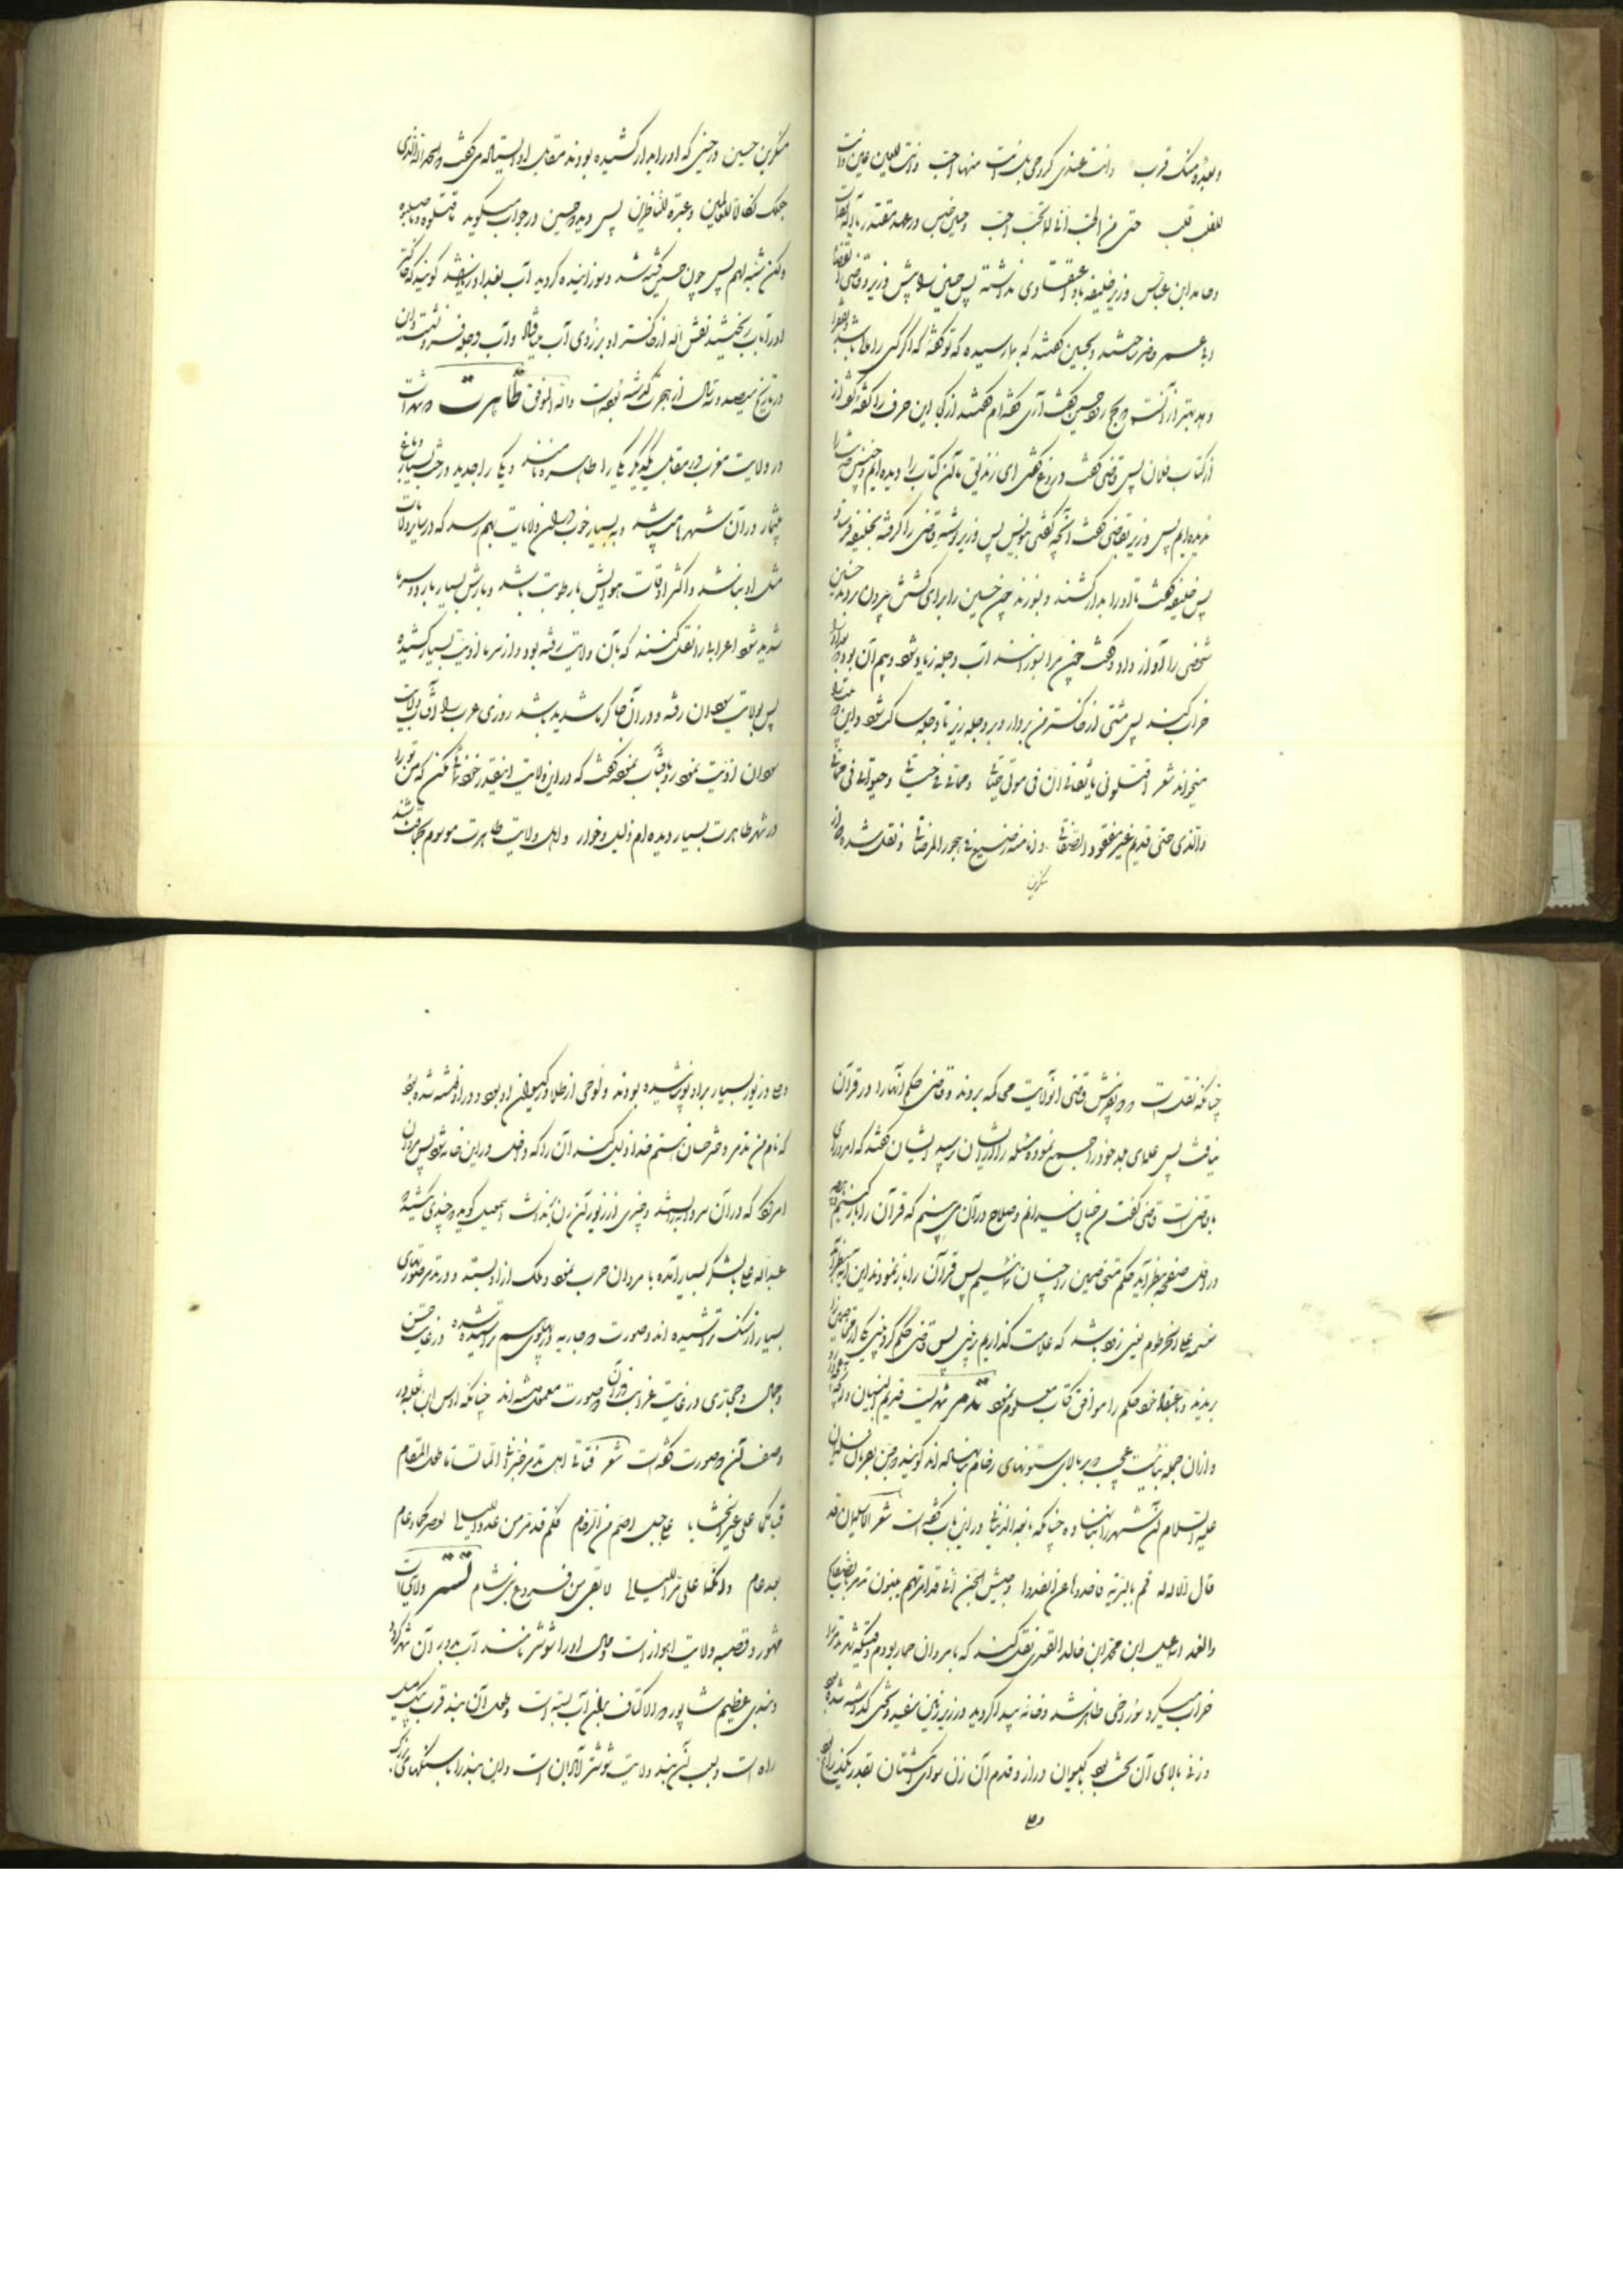 وبعده منک قرب وانت عندی کروحی بل انت منها احب وانت للعین عین وانت
للقلب قلب حتی من الحب انا له تحب احب وحین حبس در عهد مقتدر بالله
وحامد ابن عباس وزیر خلیفه با او اعتقادی نداشته پس حسین را پیش وزیر وقاضی القضاة
وبا عمر حاضر ساختند وبحسین گفتند که بما رسیده که تو گفته که اگر کسی را مال باشد
وهد بهتر از آنست که حج رود حسین گفت آری گفته ام گفتند از کجا این حرف را گفته گفت از
از کتاب فلان پس قاضی گفت دروغ گفتی ای زندیق ما آن کتاب را دیده ایم وچنین
ندیده ایم پس وزیر بقاضی گفت آنچه گفتی بنویس پس وزیر نوشته قاضی را گرفته بخلیفه فرستاد
پس خلیفه گفت تا او را بدار کشند وبسوزند چون حسین را برای کشتن بیرون بردند حسین
شخصی را آواز داد وگفت چون مرا بسوزانند آب دجله زیاد شود وبیم آن بود که بغداد را
خراب کند پس مشتی از خاکستر من بردار ودر دجله ریز تا دجله ساکن شود واین
میخواند شعر اقتلونی یا ثقاتی ان فی موتی حیاتی ومماتی فی حیاتی وحیواتی فی مماتی
والذی حتی قدیم غیر مفقود الصفات وانا منه رضیع فی حجور المرضعات ونقل شده که از
منکرین
منکرین حسین در حینی که او را بدار کشیده بودند مقابل او ایستاده می گفت والحمد لله الذی
جعلک نکالا للعالمین وعبرة للناظرین پس دید که حسین در جواب میگوید ما قتلوه وما صلبوه
ولکن شبه لهم پس چون حسین کشته شد وسوزانیده گردید آب بغداد زیاد شد گویند که خاکستر
او را بآب ریختند نقش الله از خاکستر او بر روی آب میافتاد وآب دجله فرو نشست واین
در تاریخ سیصد ونه سال از هجرت گذشته بوده است والله الموفق طاهرت دو شهر است
در ولایت مغرب در مقابل یکدیگر یکی را طاهرت نامند ویکی را جدید درخت بسیار وباغ
بیشمار در آن شهرها میباشد وبه بسیار خوب در آن ولایت بهم رسد که در سایر ولایات
مثل او نباشد واکثر اوقات هوایش با رطوبت باشد وبارش بسیار بارد وسرما
شدید شود اعرابی را نقل کنند که بآن ولایت رفته بود واز سرما اذیت بسیار کشیده
پس بولایت سودان رفته ودر آن جا گرما شدید باشد روزی عرب را آفتاب ولایت
سودان اذیت نموده رو بآفتاب نموده گفت که در این ولایت اینقدر خود نمائی مکن که من تو را
در شهر طاهرت بسیار دیده ام ذلیل وخوار واهل ولایت طاهرت موسوم بحماقت باشند
چنانکه نقل است دو نفر پیش قاضی آنولایت محاکمه بردند وقاضی حکم آنها را در قرآن
نیافت پس علمای بلد خود را جمع نموده مسئله را از ایشان پرسید ایشان گفتند که امر ورای
با قاضی است قاضی گفت من چنان میدانم وصلاح در آن می بینم که قرآن را باز کنیم
در اول صفحه بنظر آید حکم متخاصمین را چنان دانیم پس قرآن را باز نمودند این آیه بنظر آمد
سنسمه علی الخرطوم یعنی زود باشد که علامت گذاریم بر بینی پس قاضی حکم کرد بینی یکی از متخاصمین را
بریدند وباعتقاد خود حکم را موافق کتاب معلوم نمود تدمر شهریست قدیم البنیان
واز ان جمله بنائیست عجیب که بر بالای ستونهای رخام بنا نهاده اند گویند که جن بفرمان سلیمان
علیه السلام آن شهر را بنا نهاده چنانکه نابغه الذبیانی در این باب گفته است شعر الا سلیمان قد
قال الاله له قم بالبریة فاحددها عن الفند وجیش الجن انی قد امرتهم یبنون تدمر بالصفاح
والعمد اسمعیل ابن محمد ابن خالد القسری نقل کند که با مروان حمار بودم وقتیکه شهر تدمر را
خراب میکرد سوراخی ظاهر شد وخانه پیدا گردید در زیر زمین سفید وتختی گذاشته شده بود
وزنی بالای آن تخت بود با گیسوان دراز وقدم آن زن سوای انگشتان بقدر یکذراع بود
وحلی
وحلی وزیور بسیار بر او پوشیده بودند ولوحی از طلا در گیسوان او بود ودر او نوشته شده بود
که نام من تدمر دختر حسان هستم خدا ذلیل کند آن را که داخل در این خانه شود پس مروان
امر کرد که در آن سرداب بستند وچیزی از زیور آن زن بر نداشت اسمعیل گوید که چندی نکشید که
عبدالله علی با لشکر بسیار آمده با مروان حرب نموده وملک از او بستد ودر تدمر صورتهای
بسیار از سنگ تراشیده اند وصورت دو جاریه در پهلوی هم تراشیده شده در غایت حسن
وجمال وحجاری در غایت غرابت در آن دو صورت معمول شده اند چنانکه اوس ابن ثعلبه در
وصف آن دو صورت گفته است شعر فتاتی اهل تدمر خبرانی الما تسأما طول المقام
قیامکما علی غیر الحشایا علی جبل اصم من الرخام فکم قد مر من عدد اللیالی لعصرکما وعام
بعد عام وانکما علی مر اللیالی لابقی من فروع بنی شام تستر ولایتی است
مشهور وقصبه ولایت اهواز است وحال او را شوشتر نامند آب بدور آن شهر گردد
وبندی عظیم شاپور ذو الاکتاف بر آن آب بسته است وطول آن بند قرب یک میل
راه است وبسبب آن بند ولایت شوشتر آبادان است واین بند را با سنگهای بزرگ